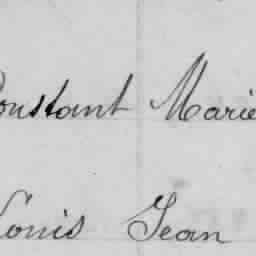 Constant Marie
Louis Jean